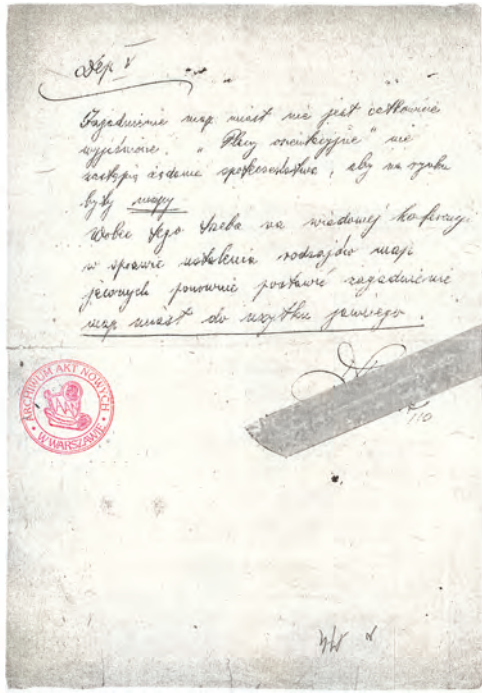 Dep. V
Zagadnienie map miast nie jest całkowicie
wyjaśnione. „Plany orientacyjne" nie
zastąpią żądania społeczeństwa, aby na rynku
były mapy
Wobec tego trzeba na wiadomej konferencji
w sprawie ustalenia rodzajów map
jawnych ponownie postawić zagadnienie
map miast do użytku jawnego.
ARCHIWUM AKT NOWYCH
W WARSZAWIE
AAN